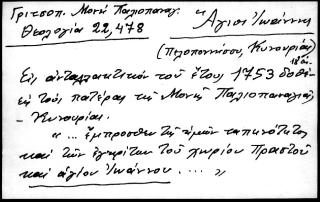 Γριτσοπ. Μονή Παλιοπαναγ.
Θεολογία 22, 478
"Άγιος Ἰωάννης
(Πελοποννήσου, Κυνουρίας)
Εἰς ἀνταλλακτικόν τοῦ ἔτους 1753 δοθέν
εἰς τούς πατέρας τῆς Μονῆς Παλιοπαναγιᾶς
- Κυνουρίας.
"... ἔμπροσθεν τῆς ἡμῶν ταπεινότητος
καί τῶν ἐγκρίτων τοῦ χωρίου Πραστοῦ
καί ἁγίου Ἰωάννου. ... "